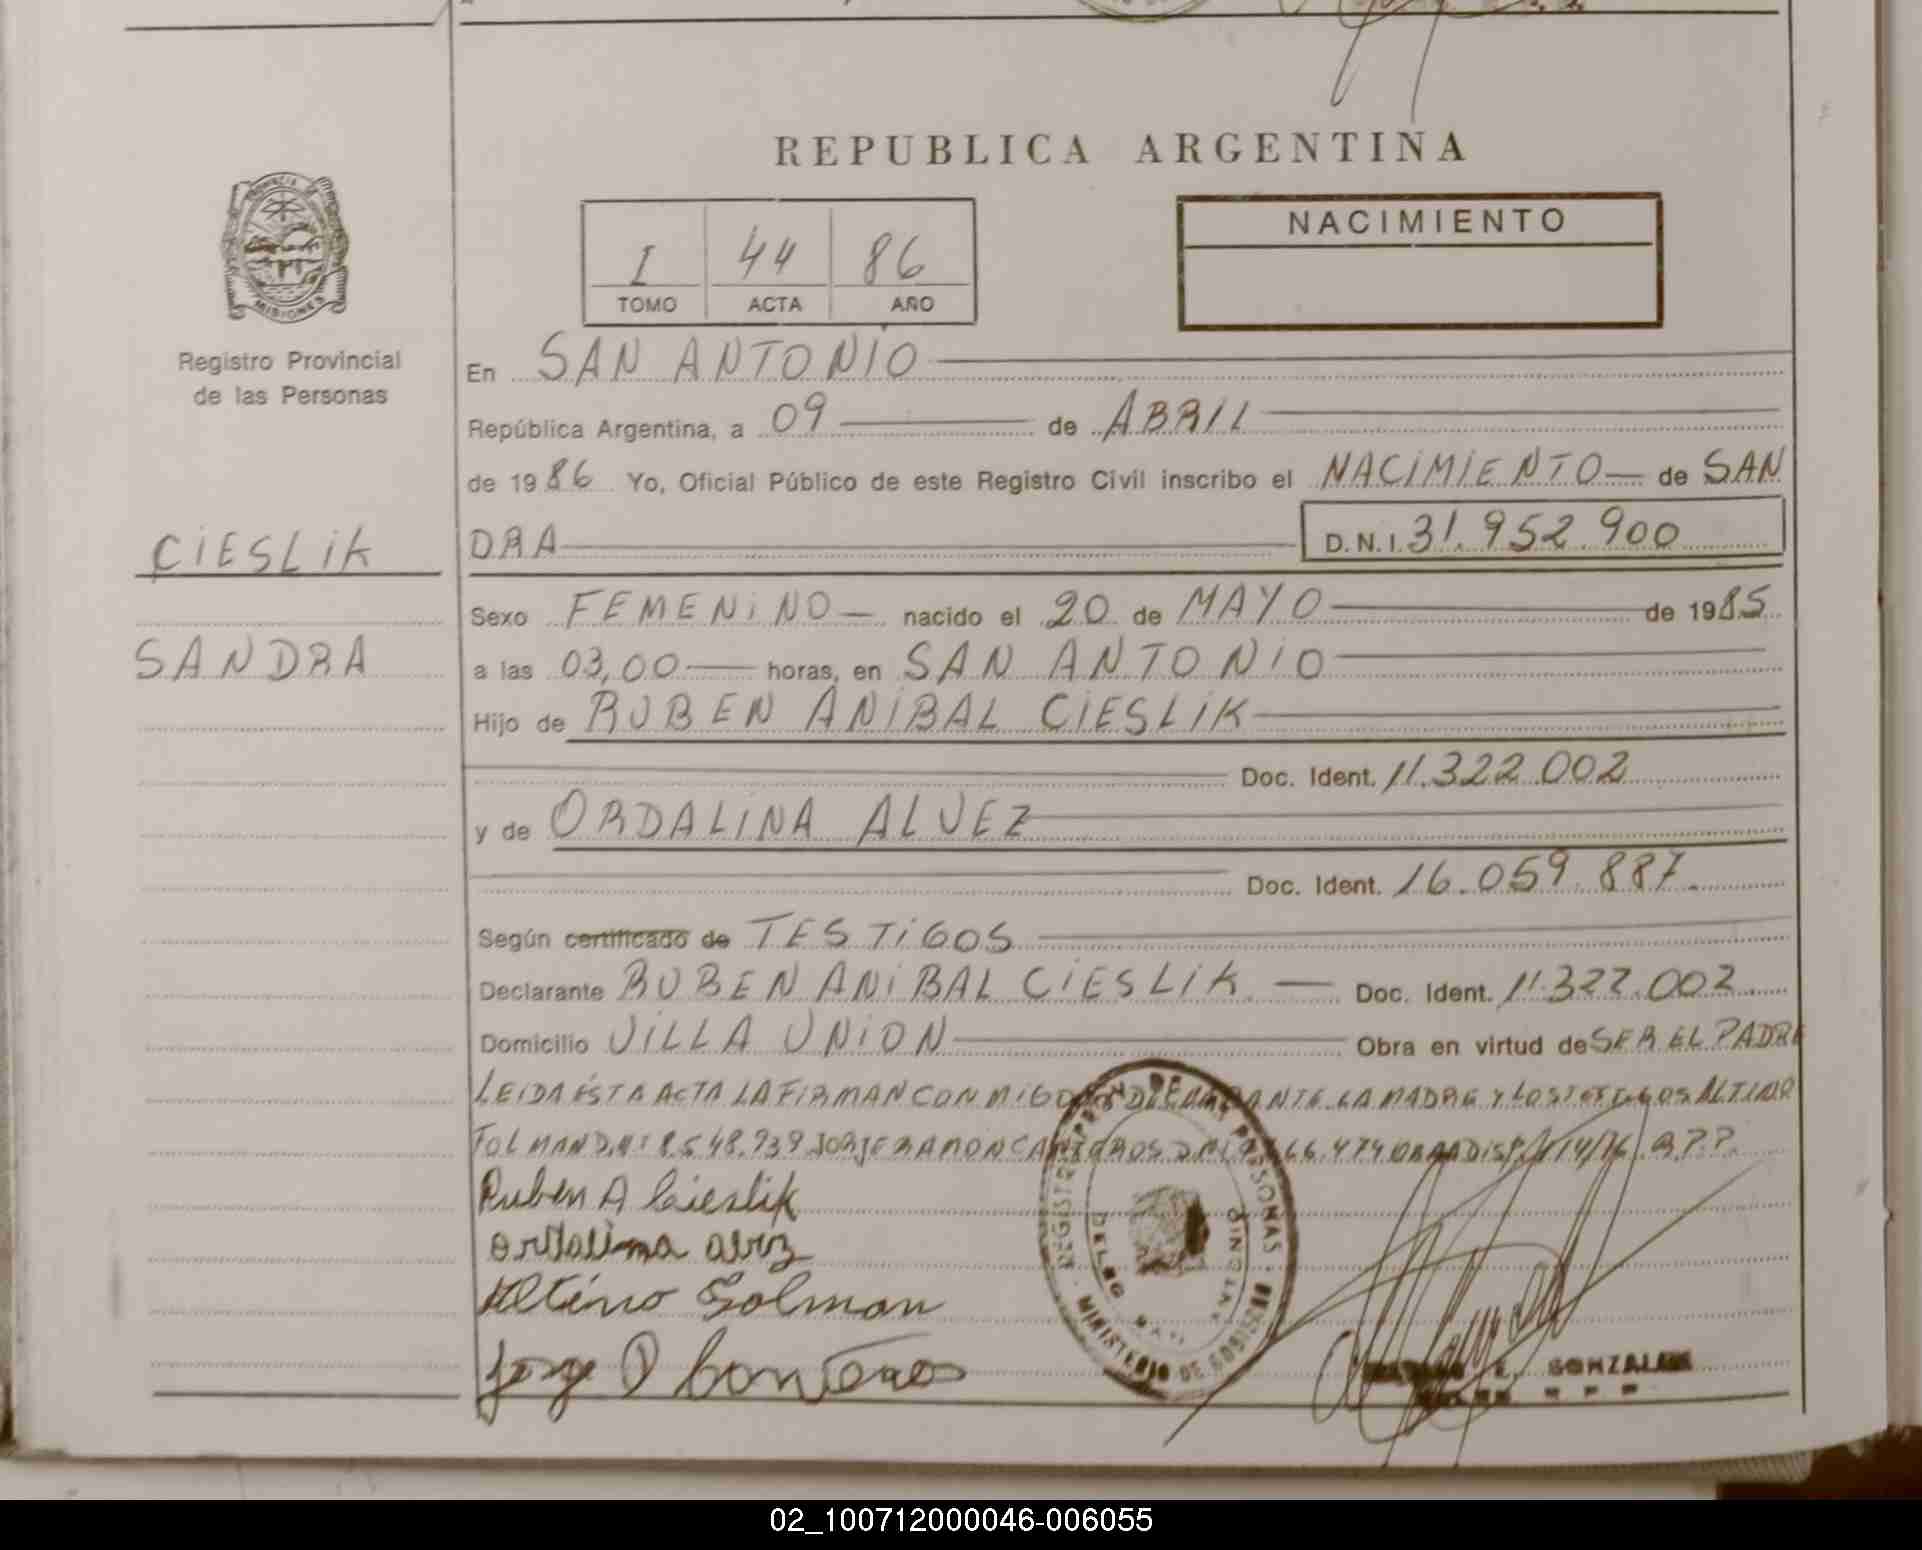 REPUBLICA ARGENTINA
PROVINCIA DE
MISIONES
Registro Provincial
de las Personas
I 44 86
TOMO ACTA AÑO
NACIMIENTO
En SAN ANTONIO
República Argentina, a 09 de ABRIL
de 1986 Yo, Oficial Público de este Registro Civil inscribo el NACIMIENTO de SAN
CIESLIK
DRA D.N.I. 31.952.900
Sexo FEMENINO nacido el 20 de MAYO de 1985
SANDRA
a las 03,00 horas, en SAN ANTONIO
Hijo de RUBEN ANIBAL CIESLIK
Doc. Ident. 11.322.002
y de ORDALINA ALVEZ
Doc. Ident. 16.059.887
Según certificado de TESTIGOS
Declarante RUBEN ANIBAL CIESLIK Doc. Ident. 11.322.002
Domicilio VILLA UNION Obra en virtud de SER EL PADRE
LEIDA ÉSTA ACTA LA FIRMAN CONMIGO LA MADRE Y LOS TESTIGOS ALTINO
JORGE RAMON
Ruben A Cieslik
Altino Golman
Jorge
MINISTERIO DE
E. GONZALEZ
02_100712000046-006055